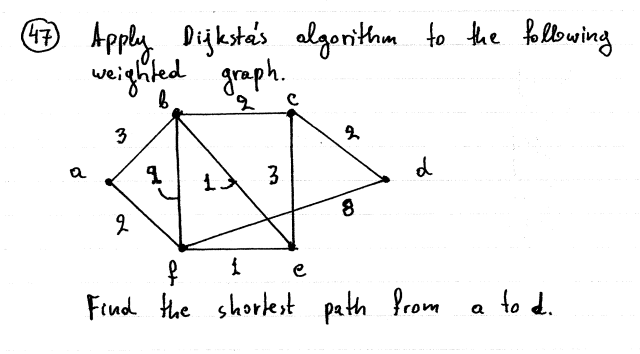 47 Apply Dijksta's algorithm to the following
weighted graph.
b 2 c
3 2
a 2 1 3 d
2 8
f 1 e
Find the shortest path from a to d.